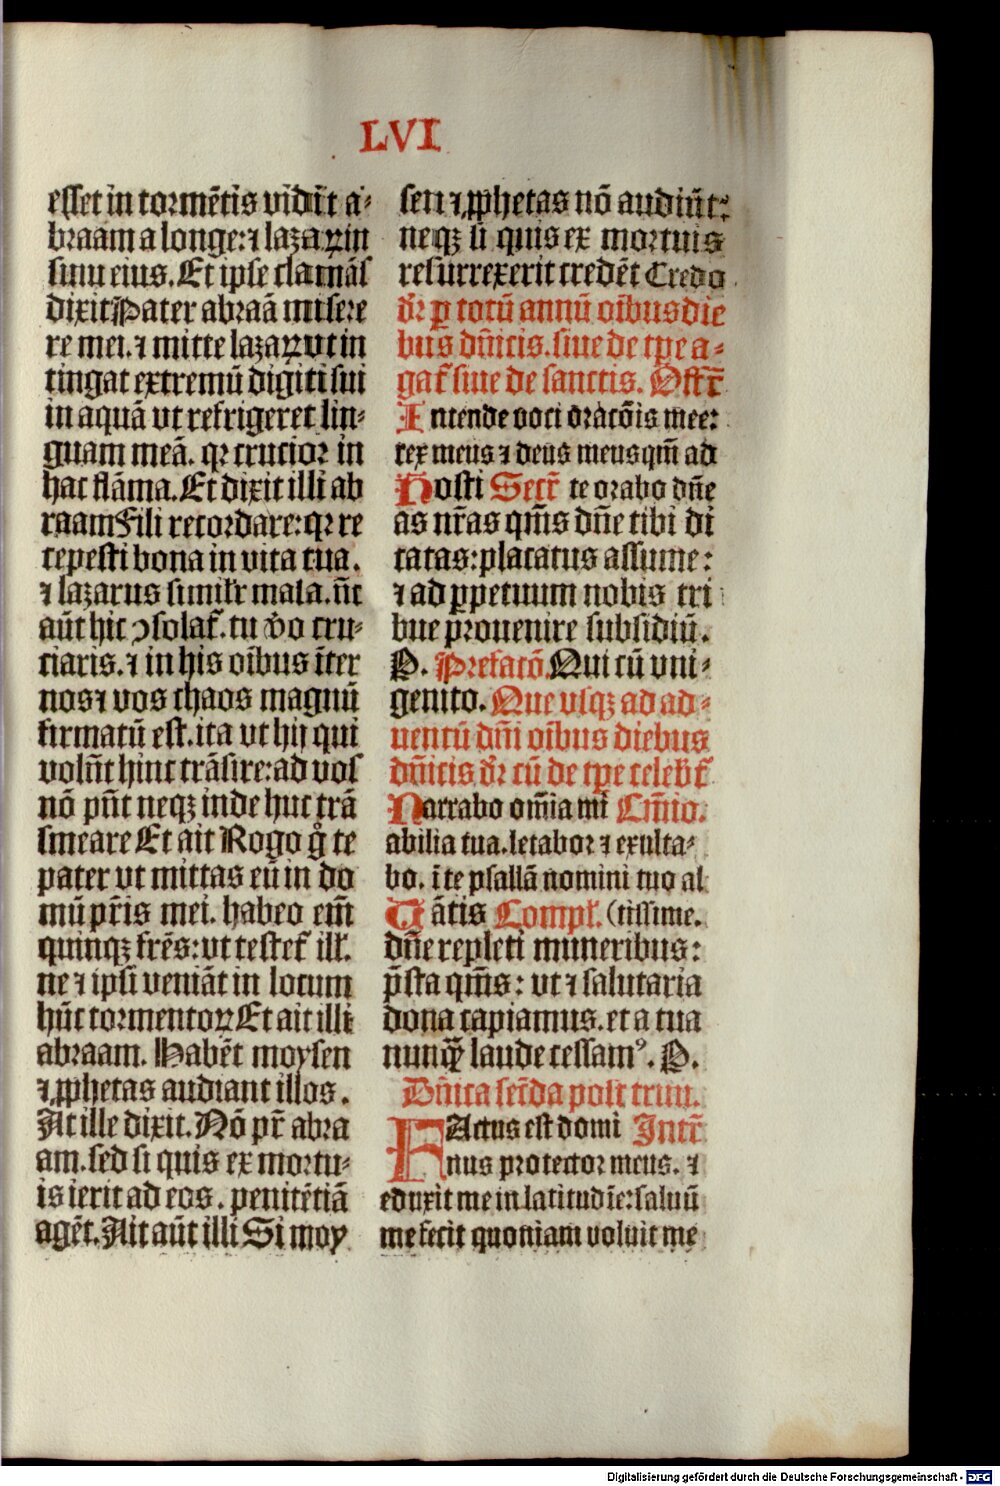 LVI
esset in tormētis vidit a-
braam a longe: ⁊ lazaꝝ in
sinu eius. Et ipse clamās
dixit Pater abraā misere
re mei. ⁊ mitte lazaꝝ vt in
tingat extremū digiti sui
in aquā vt refrigeret lin-
guam meā. qꝛ crucior in
hac flāma. Et dixit illi ab
raam Fili recordare: qꝛ re
cepesti bona in vita tua.
⁊ lazarus similr̄ mala. nūc
aūt hic ↄsolat̄. tu v̄o cru-
ciaris. ⁊ in his oībus īter
nos ⁊ vos chaos magnū
firmatū est. ita vt hij qui
volūt hinc trāsire: ad vos
nō pn̄t neqꝫ inde huc trā
smeare Et ait Rogo g̊ te
pater vt mittas eū in do
mū pr̄is mei. habeo em̄
quinqꝫ fr̄es: vt testet̄ ill'.
ne ⁊ ipsi veniāt in locum
hūc tormentoꝝ Et ait illi
abraam. Habēt moysen
⁊ ꝓphetas audiant illos.
At ille dixit. Nō pr̄ abra
am. sed si quis ex mortu-
is ierit ad eos. penitētiā
agēt. Ait aūt illi Si moy
sen ⁊ ꝓphetas nō audiūt:
neqꝫ si quis ex mortuis
resurrexerit credēt Credo
dr̄ ꝑ totū annū oībus die
bus dn̄icis. siue de tꝑe a-
gat̄ siue de sanctis. Offr̄
Intende voci oracōis mee:
rex meus ⁊ deus meus qm̄ ad
Hosti Secr̄ te orabo dn̄e
as nr̄as qm̄s dn̄e tibi di
catas: placatus assume:
⁊ ad ꝑpetuum nobis tri
bue prouenire subsidiū.
P. Prefatō. Qui cū vni-
genito. Que vsqꝫ ad ad-
uentū dn̄i oībus diebus
dn̄icis dr̄ cū de tꝑe celebr̄t
Narrabo om̄ia mi Cm̄io.
abilia tua. letabor ⁊ exulta-
bo. ī te psallā nomini tuo al
Tātis Compl'. (tissime.
dn̄e repleti muneribus:
p̄sta qm̄s: vt ⁊ salutaria
dona capiamus. et a tua
nunqꝫ laude cessamꝰ. P.
Dn̄ica scd̄a post trini.
FActus est domi Intr̄
nus protector meus. ⁊
eduxit me in latitudīe: saluū
me fecit quoniam voluit me
Digitalisierung gefördert durch die Deutsche Forschungsgemeinschaft - DFG